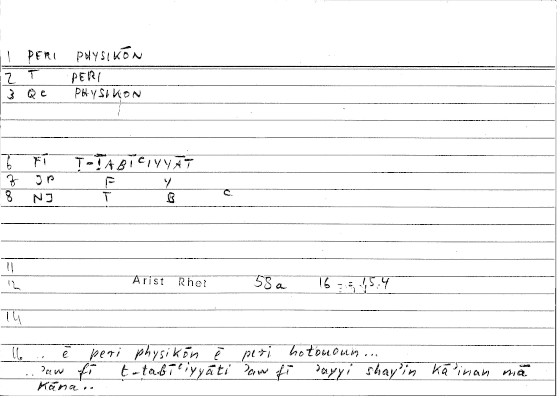 1 PERI PHYSIKŌN
2 T PERI
3 Qc PHYSIKŌN
6 FĪ Ṭ-ṬABĪʿIYYĀT
7 JP F Y
8 NJ Ṭ B ʿ
11
12 Arist Rhet 58a 16
14
16 .. ē peri physikōn ē peri hotououn...
..ʾaw fī ṭ-ṭabīʿiyyāti ʾaw fī ʾayyi shayʾin kāʾinan mā
kāna..